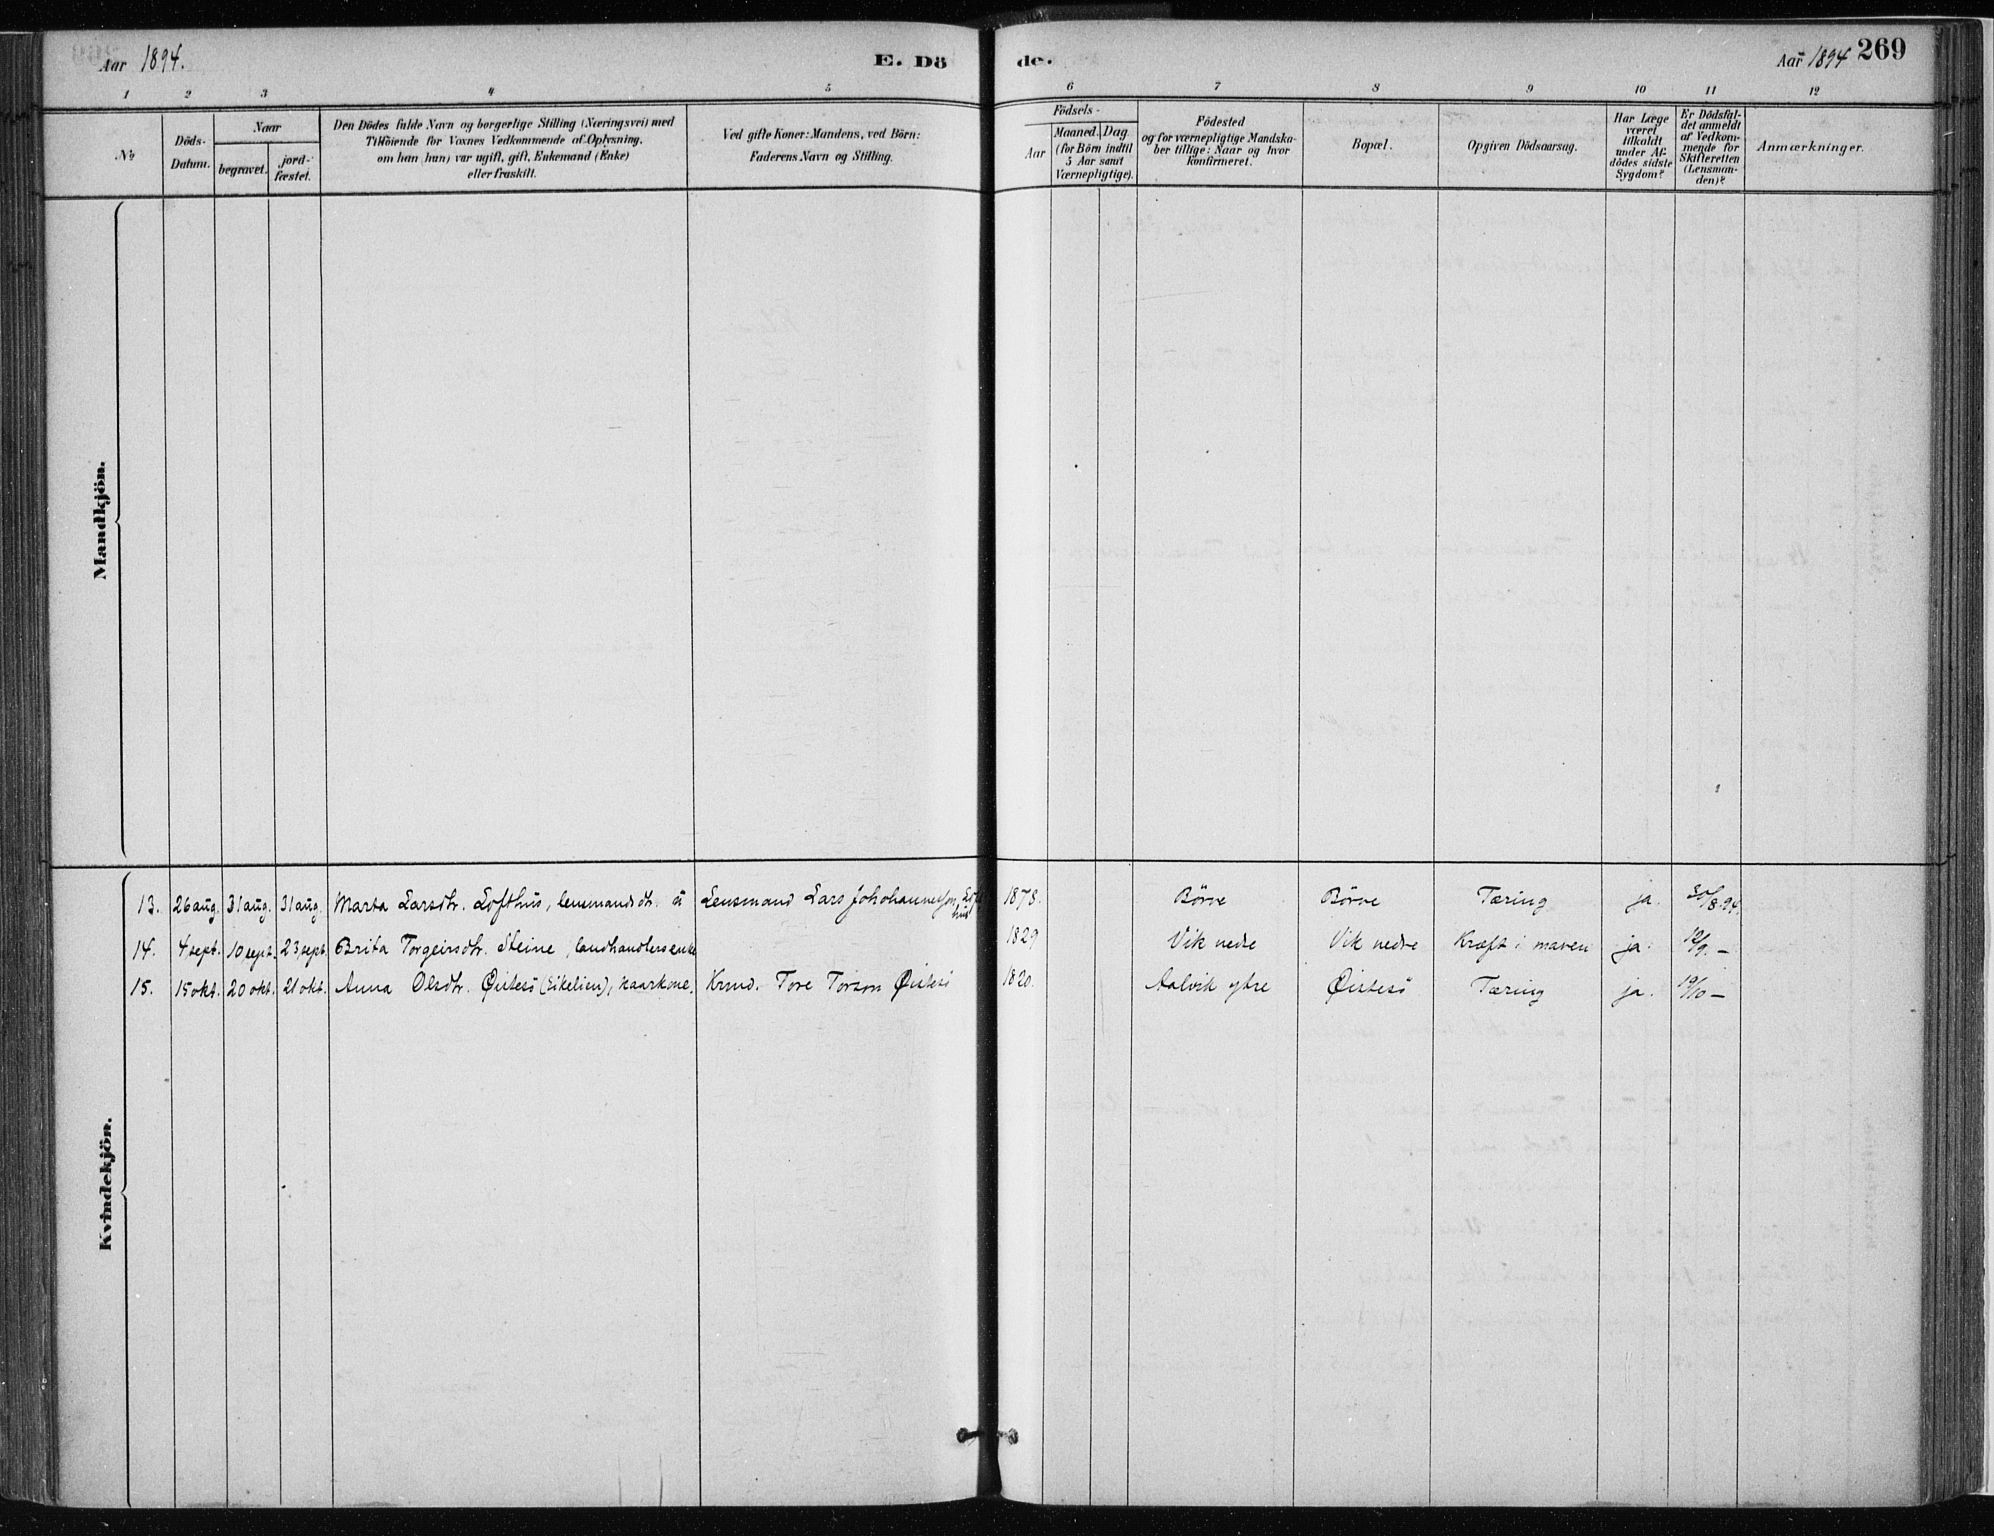 Aar 1894.
E. Dö
de.
Aar 1894 269
1 2 3 4 5 6 7 8 9 10 11 12
No
Döds-
Datum.
Naar
begravet.
jord-
fæstet.
Den Dödes fulde Navn og borgerlige Stilling (Næringsvei) med
Tilföiende for Voxnes Vedkommende af Oplysning,
om han (hun) var ugift, gift, Enkemand (Enke)
eller fraskilt.
Ved gifte Koner: Mandens, ved Börn:
Faderens Navn og Stilling.
Födsels-
Aar
Maaned. Dag.
(for Börn indtil
5 Aar samt
Værnepligtige).
Födested
og for værnepligtige Mandska-
ber tillige: Naar og hvor
Konfirmeret.
Bopæl.
Opgiven Dödsaarsag.
Har Læge
været
tilkaldt
under Af-
dödes sidste
Sygdom?
Er Dödsfal-
det anmeldt
af Vedkom-
mende for
Skifteretten
(Lensman-
den)?
Anmærkninger.
Mandkjön.
Kvindekjön.
13. 26 aug. 31 aug. 31 aug. Marta Larsdtr. Lofthus, lensmandsdtr. u Lensmand Lars Johohannesson Loft hus 1878. Börve Börve Tæring ja. 30/8.94.
14. 4 sept. 10 sept. 23 sept. Brita Torgeirsdtr. Steine, landhandlersenke 1829 Vik nedre Vik nedre Kræft i maven ja. 12/9. —
15. 15 okt. 20 okt. 21 okt. Anna Olsdtr. Östesö (Eikelien), kaarkone, Krmd. Tore Torson Östesö 1820. Aalvik ytre Östesö Tæring ja. 19/10 —